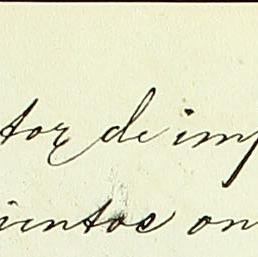 tor de imp
ientos on